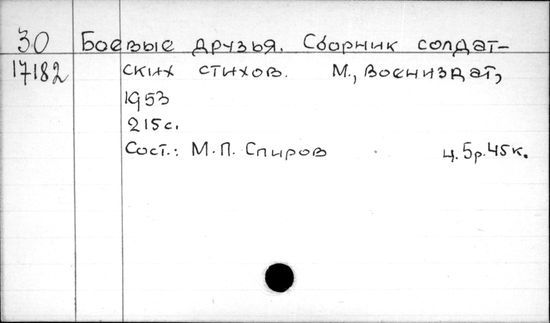 30 Боевые друзья. Сборник солдат-
17182 ских стихов. М., Воениздат,
1953
215с.
Сост.: М.П. Спиров ц. 5р.45к.